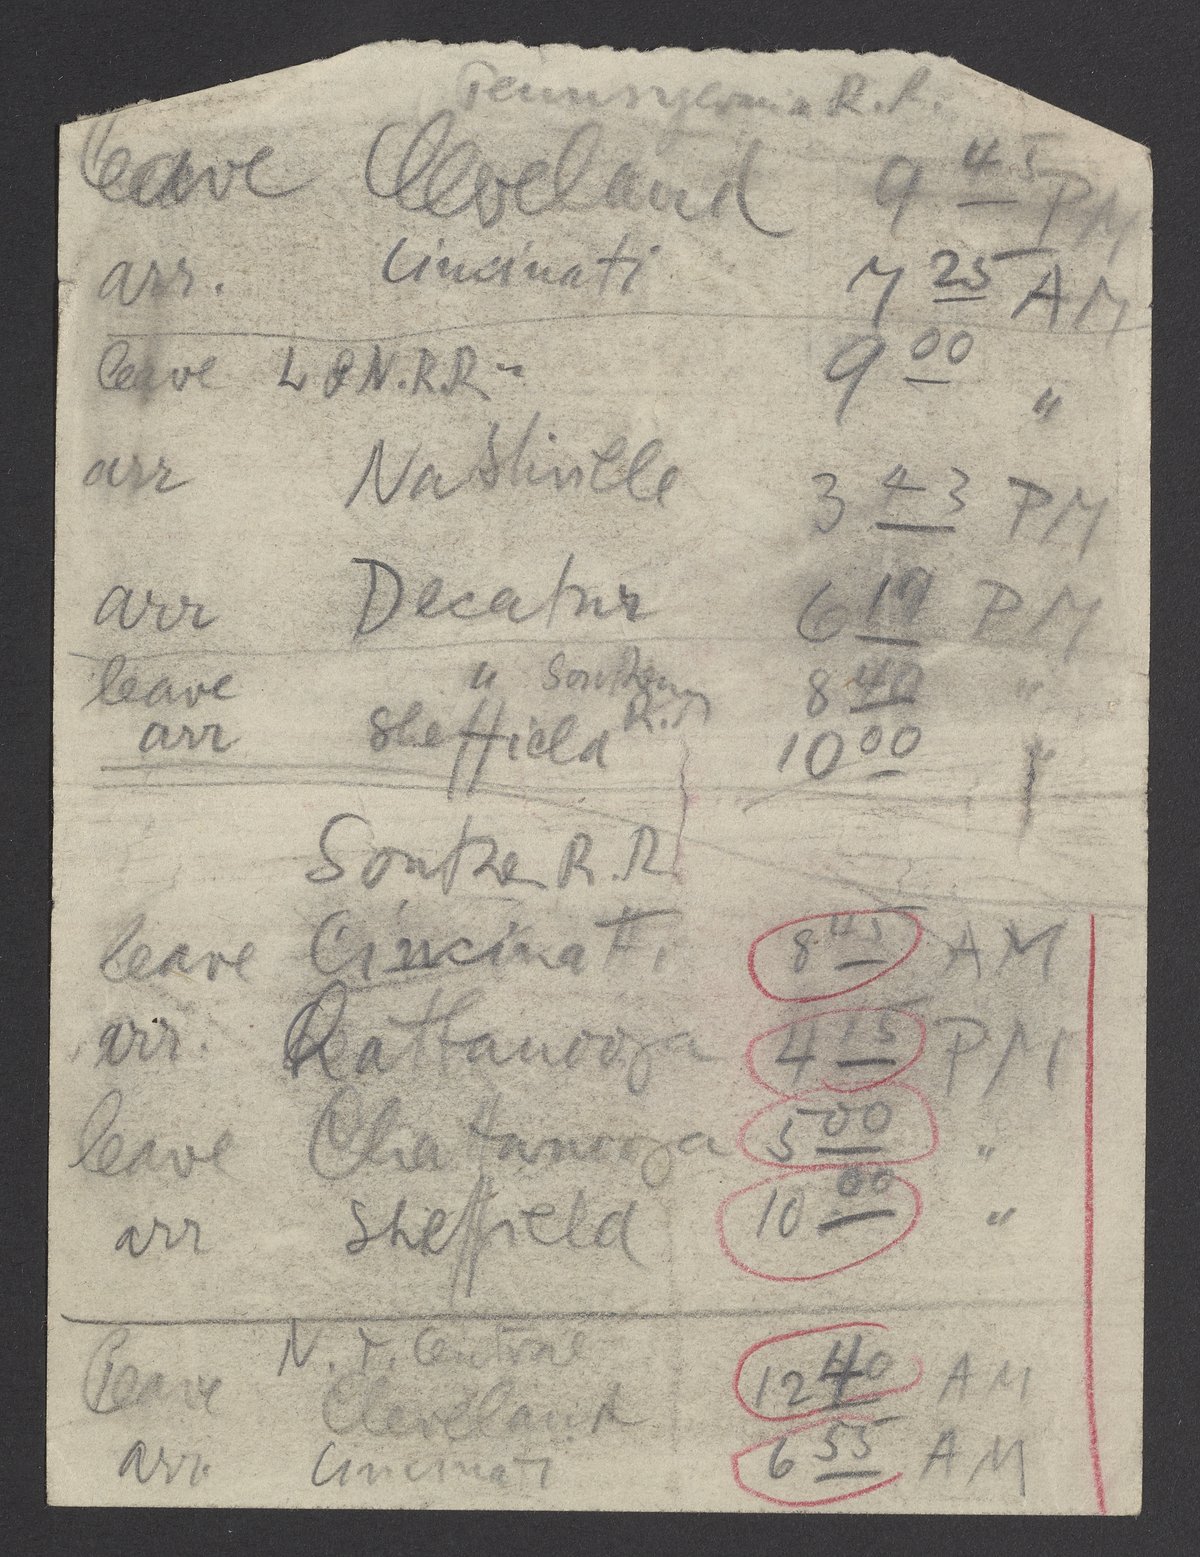 Pennsylvania R.R.
leave Cleveland 9 45 PM
arr. Cincinati 7 25 AM
leave L & N.R.R- 9 00 "
arr Nashville 3 43 PM
arr Decatur 6 19 PM
leave " Southern R.R 8 40 "
arr Sheffield 10 00 "
Southern R.R
leave Cincinati 8 45 AM
arr. Chattanooga 4 15 PM
leave Chattanooga 5 00 "
arr Sheffield 10 00 "
N. Y. Central
leave Cleveland 12 40 AM
arr. Cincinati 6 55 AM